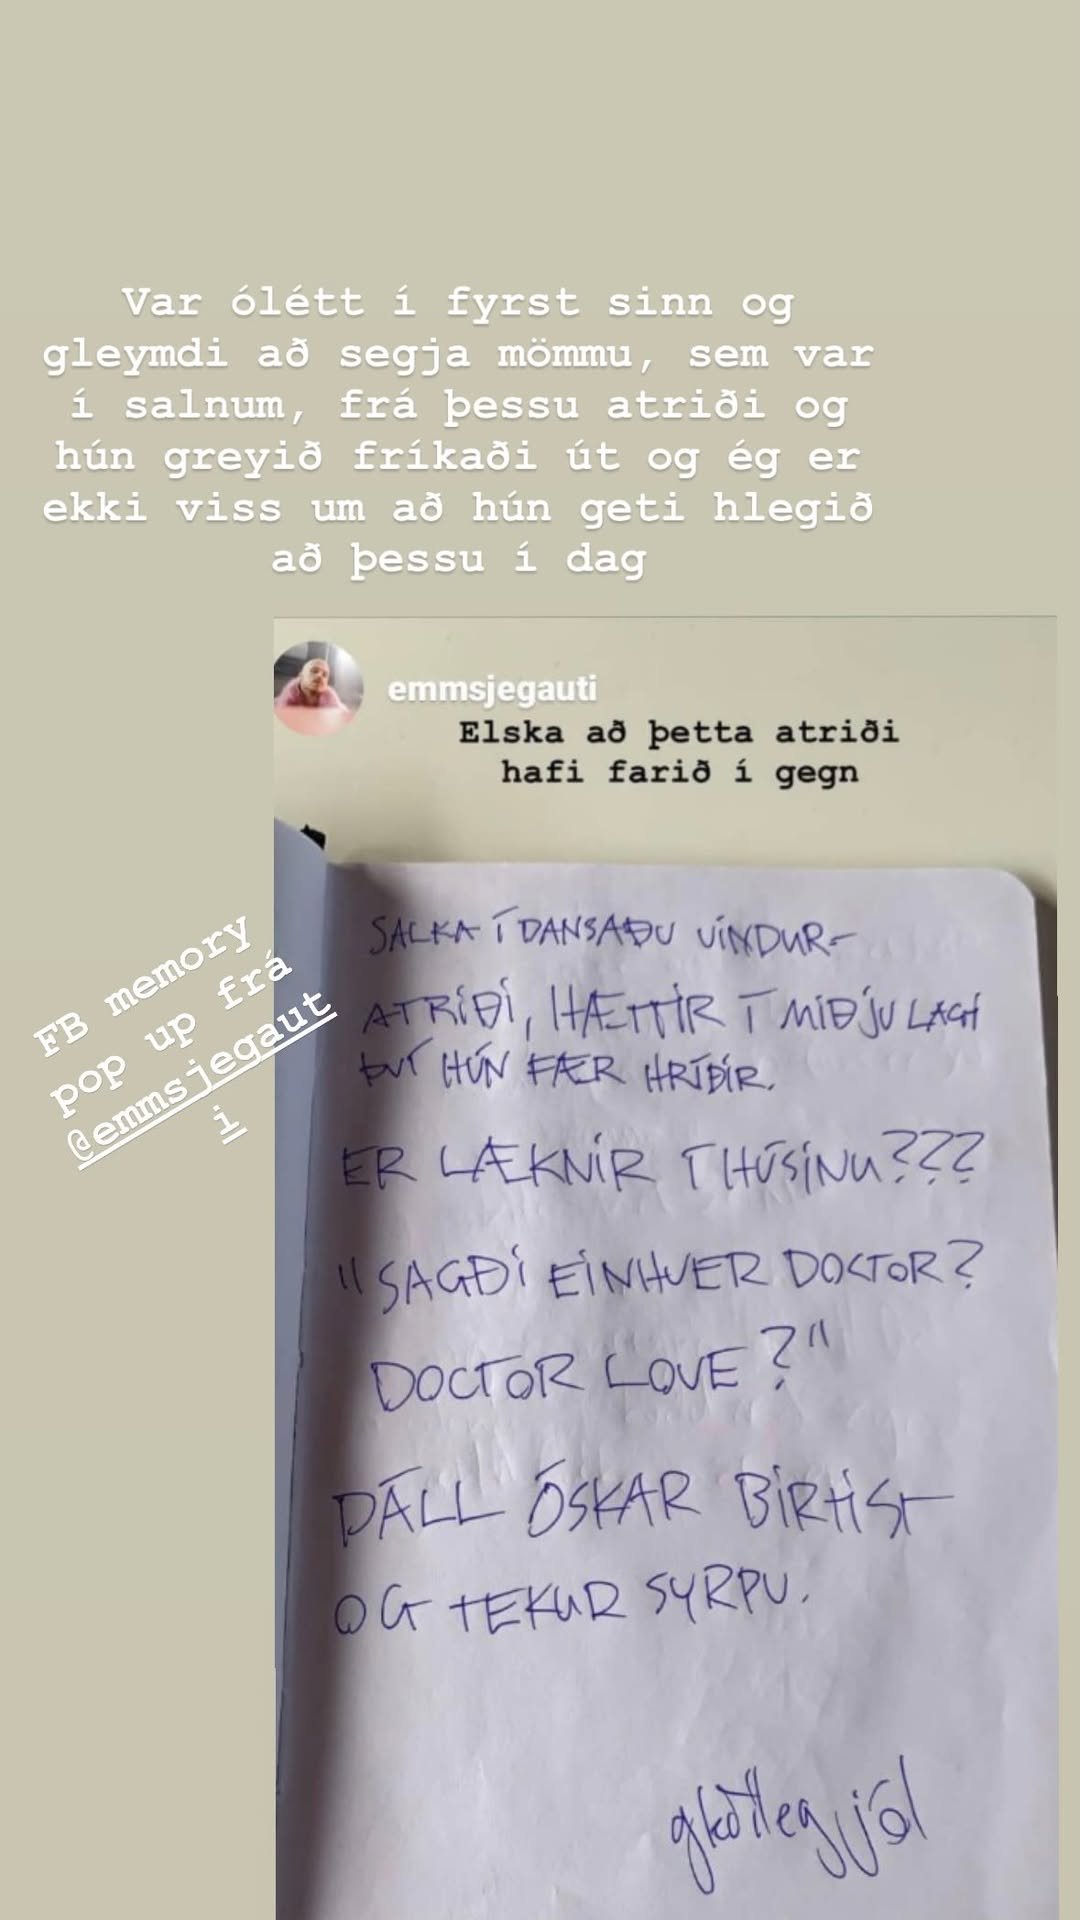 Var ólétt í fyrst sinn og
gleymdi að segja mömmu, sem var
í salnum, frá þessu atriði og
hún greyið fríkaði út og ég er
ekki viss um að hún geti hlegið
að þessu í dag
emmsjegauti
Elska að þetta atriði
hafi farið í gegn
FB memory
pop up frá
@emmsjegaut
i
SALKA Í DANSAÐU VINDUR-
ATRIÐI, HÆTTIR Í MIÐJU LAGI
ÞVÍ HÚN FÆR HRÍÐIR.
ER LÆKNIR Í HÚSINU???
"SAGÐI EINHVER DOCTOR?
DOCTOR LOVE?"
PÁLL ÓSKAR BIRTIST
OG TEKUR SYRPU.
jól